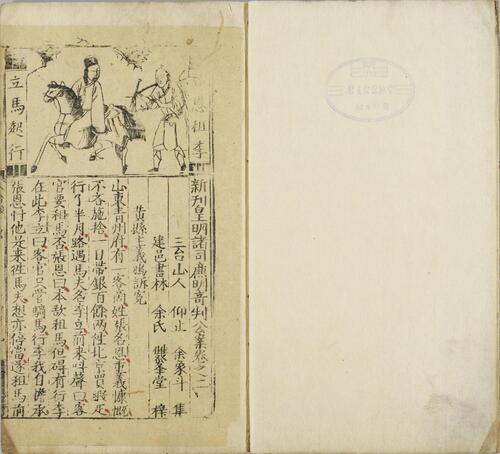 恩租李
立馬起行
新刊皇明諸司廉明奇判公案卷之二
三台山人 仰止 余象斗 集
建邑書林 余氏 雙峯堂 梓
黄縣主義鴉訴冤
山東青州府有一客商姓張名恩重義慷慨
不吝施捨一日帶銀百餘兩徃北京買段疋
行了半月路遇馬夫名李立前來叫聲曰客
官要租馬否張恩曰本欲租馬但碍有行李
在此李立曰客官只管騎馬行李我自擔承
張恩忖他是來徃馬夫想亦停當遂租馬前